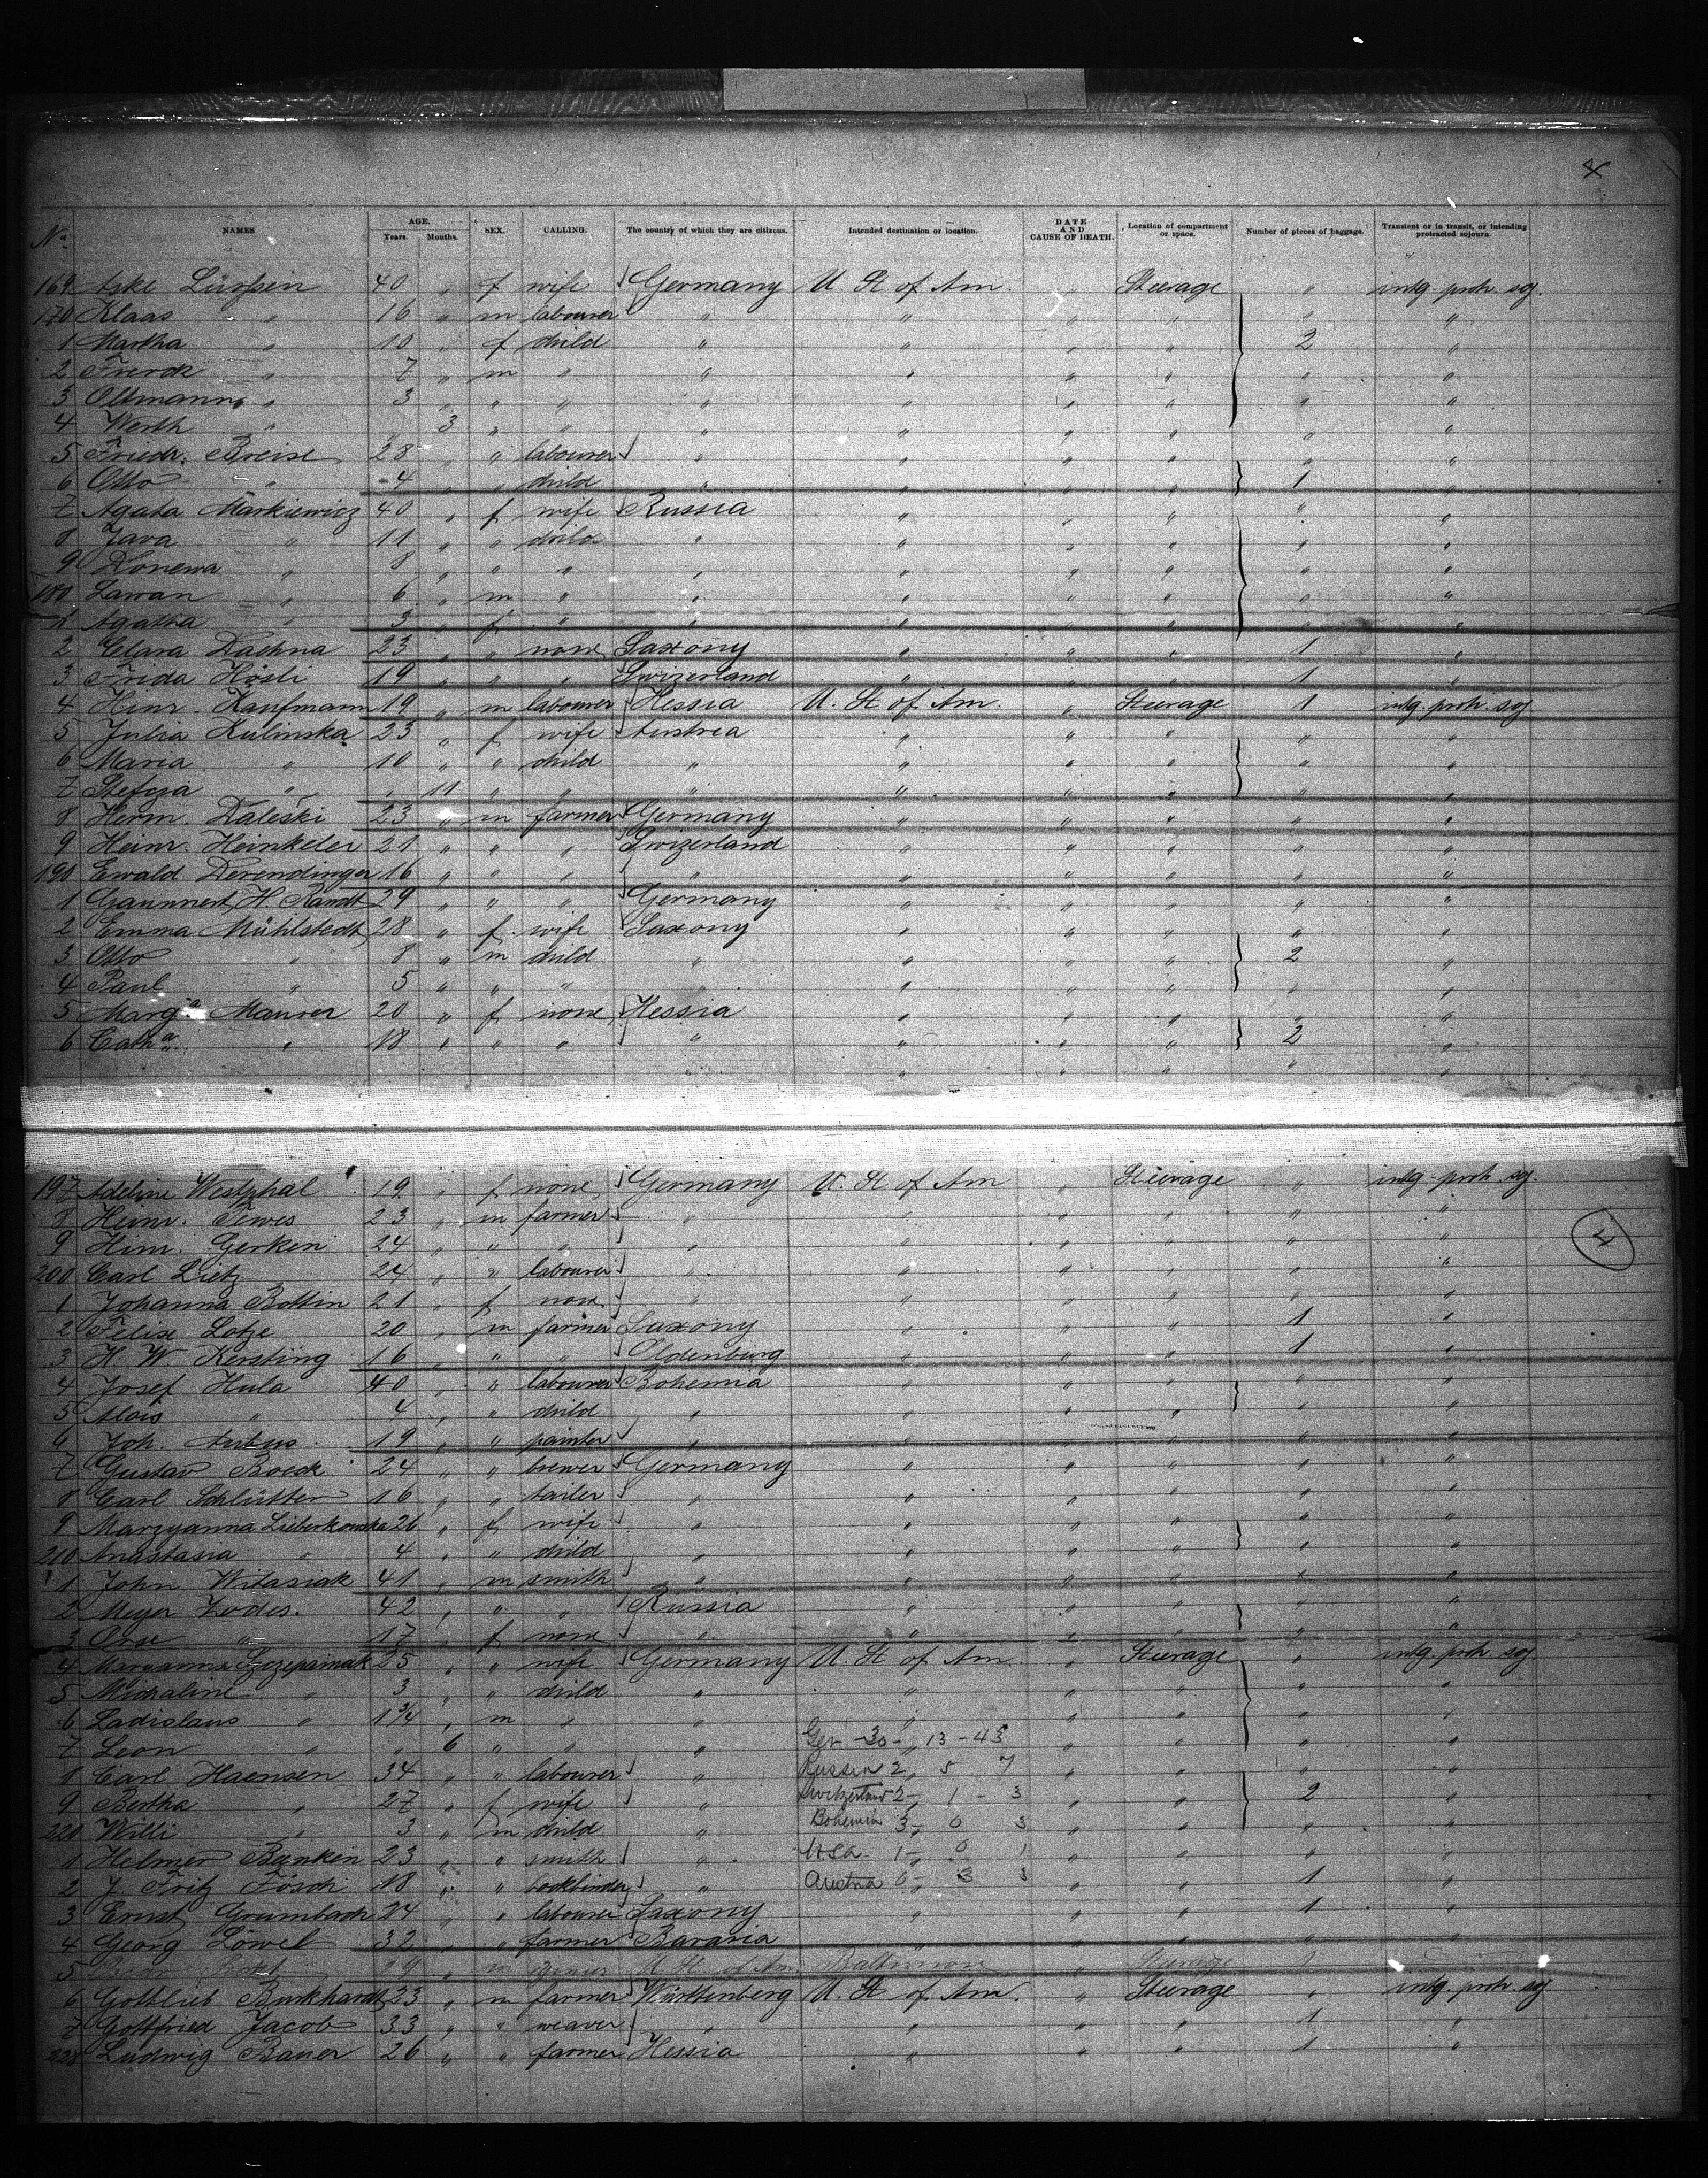 4
No. NAMES AGE. Years. Months. SEX. CALLING. The country of which they are citizens. Intended destination or location. DATE AND CAUSE OF DEATH. Location of compartment or space. Number of pieces of baggage. Transient or in transit, or intending protracted sojourn.
169 Lürssen 40 " f wife Germany U. St of Am. " Steerage " intg. protr. soj.
170 Klaas " 16 " m labourer " " " " " "
1 Martha " 10 " f child " " " " 2 "
2 Frerck " 7 " m " " " " " " "
3 Oltmann " 3 " " " " " " " " "
4 " " 3 " " " " " " " "
5 Friedr. Breise 28 " " labourer " " " " " "
6 Otto " 4 " " child " " " " 1 "
7 Agata Markiewicz 40 " f wife Russia " " " " "
8 Java " 11 " " child " " " " " "
9 Donewa " 8 " " " " " " " " "
180 Lawan " 6 " m " " " " " " "
1 Agatha " 3 " f " " " " " " "
2 Clara Daehna 23 " " none Saxony " " " 1 "
3 Frida Hösli 19 " " " Swizerland " " " 1 "
4 Hinr. Kaufmann 19 " m labourer Hessia U. St of Am. " Steerage 1 intg. protr. soj
5 Julia Kulinska 23 " f wife Austria " " " " "
6 Maria " 10 " " child " " " " " "
7 Stefcja " " 11 " " " " " " " "
8 Herm. Daleski 23 " m farmer Germany " " " " "
9 Heinr. Heinkeler 21 " " " Swizerland " " " " "
190 Ewald Derendinger 16 " " " " " " " " "
1 H. Randt 29 " " " Germany " " " " "
2 Emma Mühlstedt 28 " f wife Saxony " " " " "
3 Otto " 8 " m child " " " " 2 "
4 Paul " 5 " " " " " " " " "
5 Marga Maurer 20 " f none Hessia " " " " "
6 Catha " 18 " " " " " " " 2 "
197 Adeline Westphal 19 " f none Germany U. St of Am " Steerage " intg. protr. soj.
8 Heinr. Tewes 23 " m farmer " " " " " "
9 Hinr. Gerken 24 " " " " " " " " "
4
200 Carl Lietz 24 " " labourer " " " " " "
1 Johanna Bottin 21 " f none " " " " " "
2 Felix Lotze 20 " m farmer Saxony " " " 1 "
3 H. W. Kersting 16 " " " Oldenburg " " " 1 "
4 Josef Hula 40 " " labourer Bohemia " " " " "
5 Alois " 4 " " child " " " " " "
6 Joh. 19 " " painter " " " " " "
7 Gustav Boeck 24 " " brewer Germany " " " " "
8 Carl Schlütter 16 " " tailer " " " " " "
9 Maryanna Lieberkowska 26 " f wife " " " " " "
210 Anastasia " 4 " " child " " " " " "
1 John Witasiak 41 " m smith " " " " " "
2 Meyer Zodes. 42 " " " Russia " " " " "
3 Orse " 17 " f none " " " " " "
4 Maryanna Szczepaniak 25 " " wife Germany U. St of Am. " Steerage " intg. protr. soj
5 Michaline " 3 " " child " " " " " "
6 Ladislaus " 1 3/4 " m " " " " " " "
7 Leon " " 6 " " " Ger - 30 - 13 - 43 " " " "
8 Carl Haensen 34 " " labourer " Russia 2 5 7 " " " "
9 Bertha " 27 " f wife " Switzerland 2 - 1 - 3 " " 2 "
220 Willi " 3 " m child " Bohemia 3 - 0 3 " " " "
1 Helmer Banken 23 " " smith " USA 1 - 0 1 " " " "
2 J. Fritz Fösch 18 " " bookbinder " Austria 0 3 3 " " 1 "
3 Ernst Grumbach 24 " " labourer Saxony " " " 1 "
4 Georg Löwel 32 " " farmer Bavaria " " " " "
5 29 " m U. St. of Am Baltimore " Steerage 1
6 Gottlieb Burkhardt 23 " m farmer Württenberg U. St of Am. " Steerage " intg. protr. soj
7 Gottfried Jacob 33 " " weaver " " " " 1 "
228 Ludwig Bauer 26 " " farmer Hessia " " " 1 "